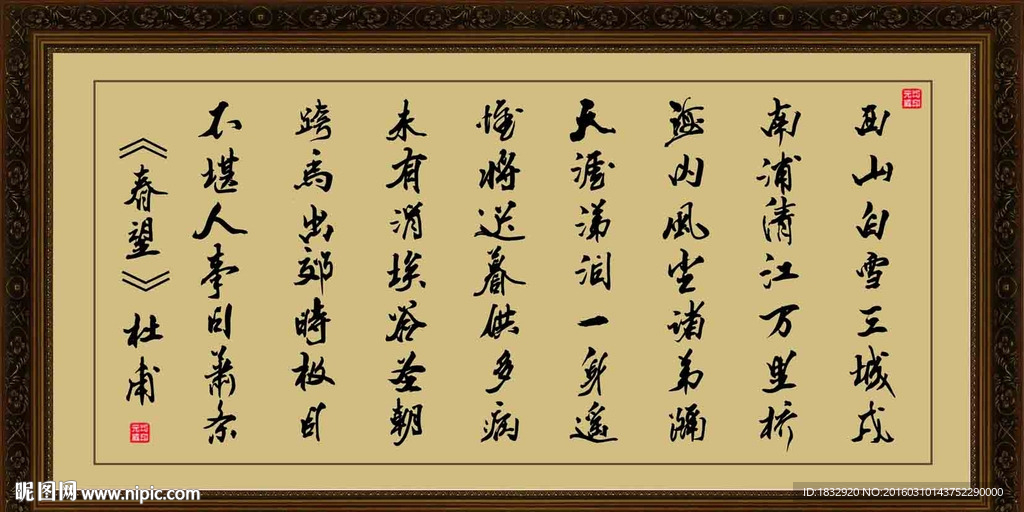 西山白雪三城戍
南浦清江万里桥
海内風尘诸弟隔
天涯涕泪一身遥
惟将迟暮供多病
未有涓埃答圣朝
跨馬出郊時极目
不堪人事日萧条
《春望》杜甫
昵图网 www.nipic.com
ID:1832920 NO:20160310143752290000